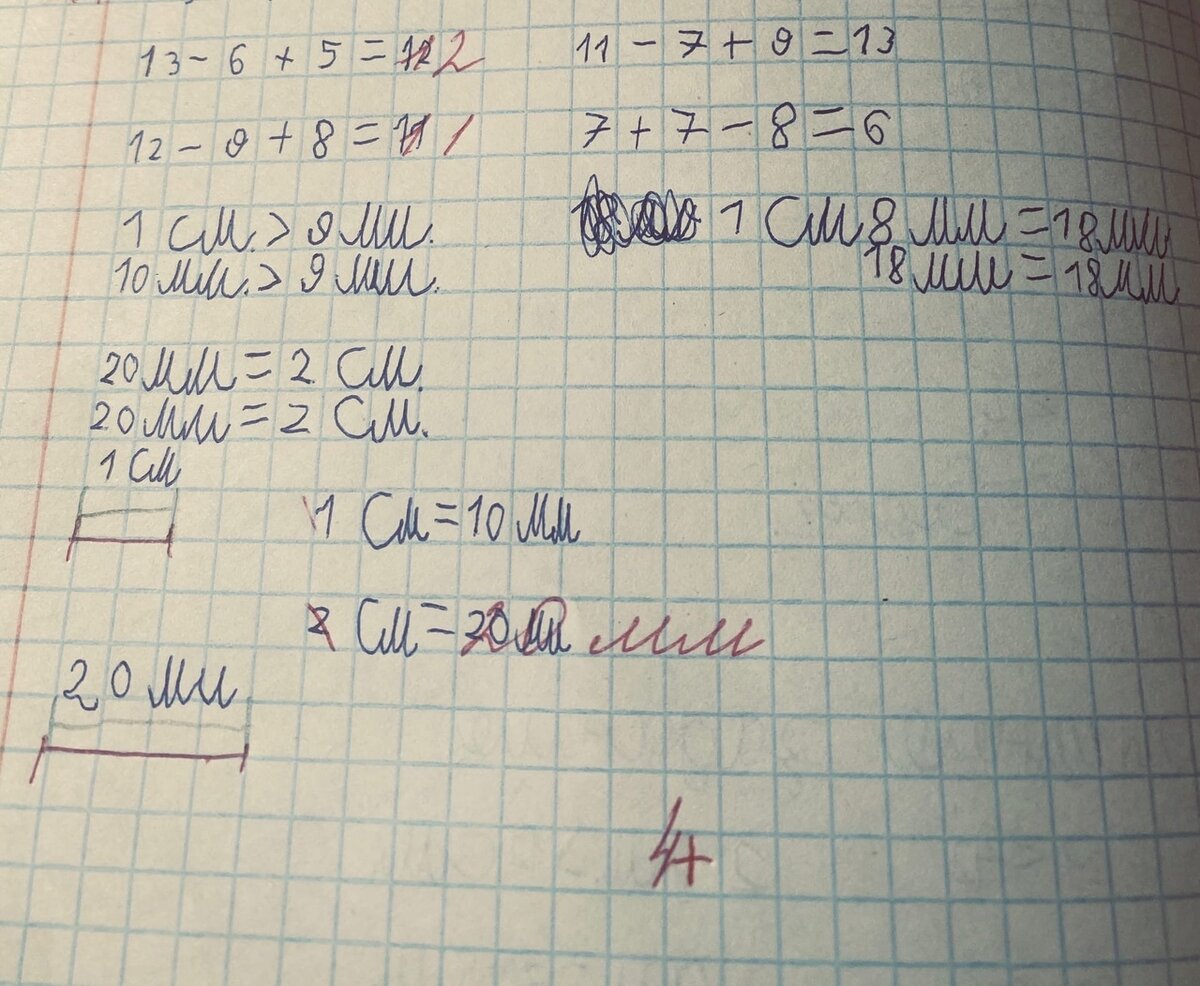 13 - 6 + 5 = 12 2
11 - 7 + 9 = 13
12 - 9 + 8 = 11 1
7 + 7 - 8 = 6
1 см. > 9 мм.
10 мм. > 9 мм.
1 см 8 мм = 18 мм
18 мм = 18 мм
20 мм = 2 см.
20 мм = 2 см.
1 см
1 см = 10 мм
2 см = 20 мм мм
20 мм
4+